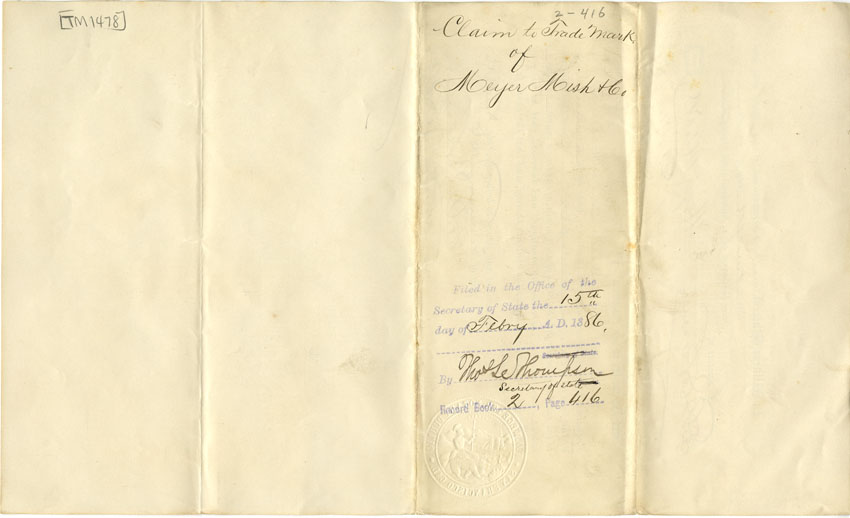 TM1478
2-416
Claim to Trade Mark
of
Meyer Mish & Co.
Filed in the Office of the
Secretary of State the 15th
day of Febry A. D. 1886.
Secretary of State
By Thos L. Thompson
Secretary of State
Record Book 2, Page 416